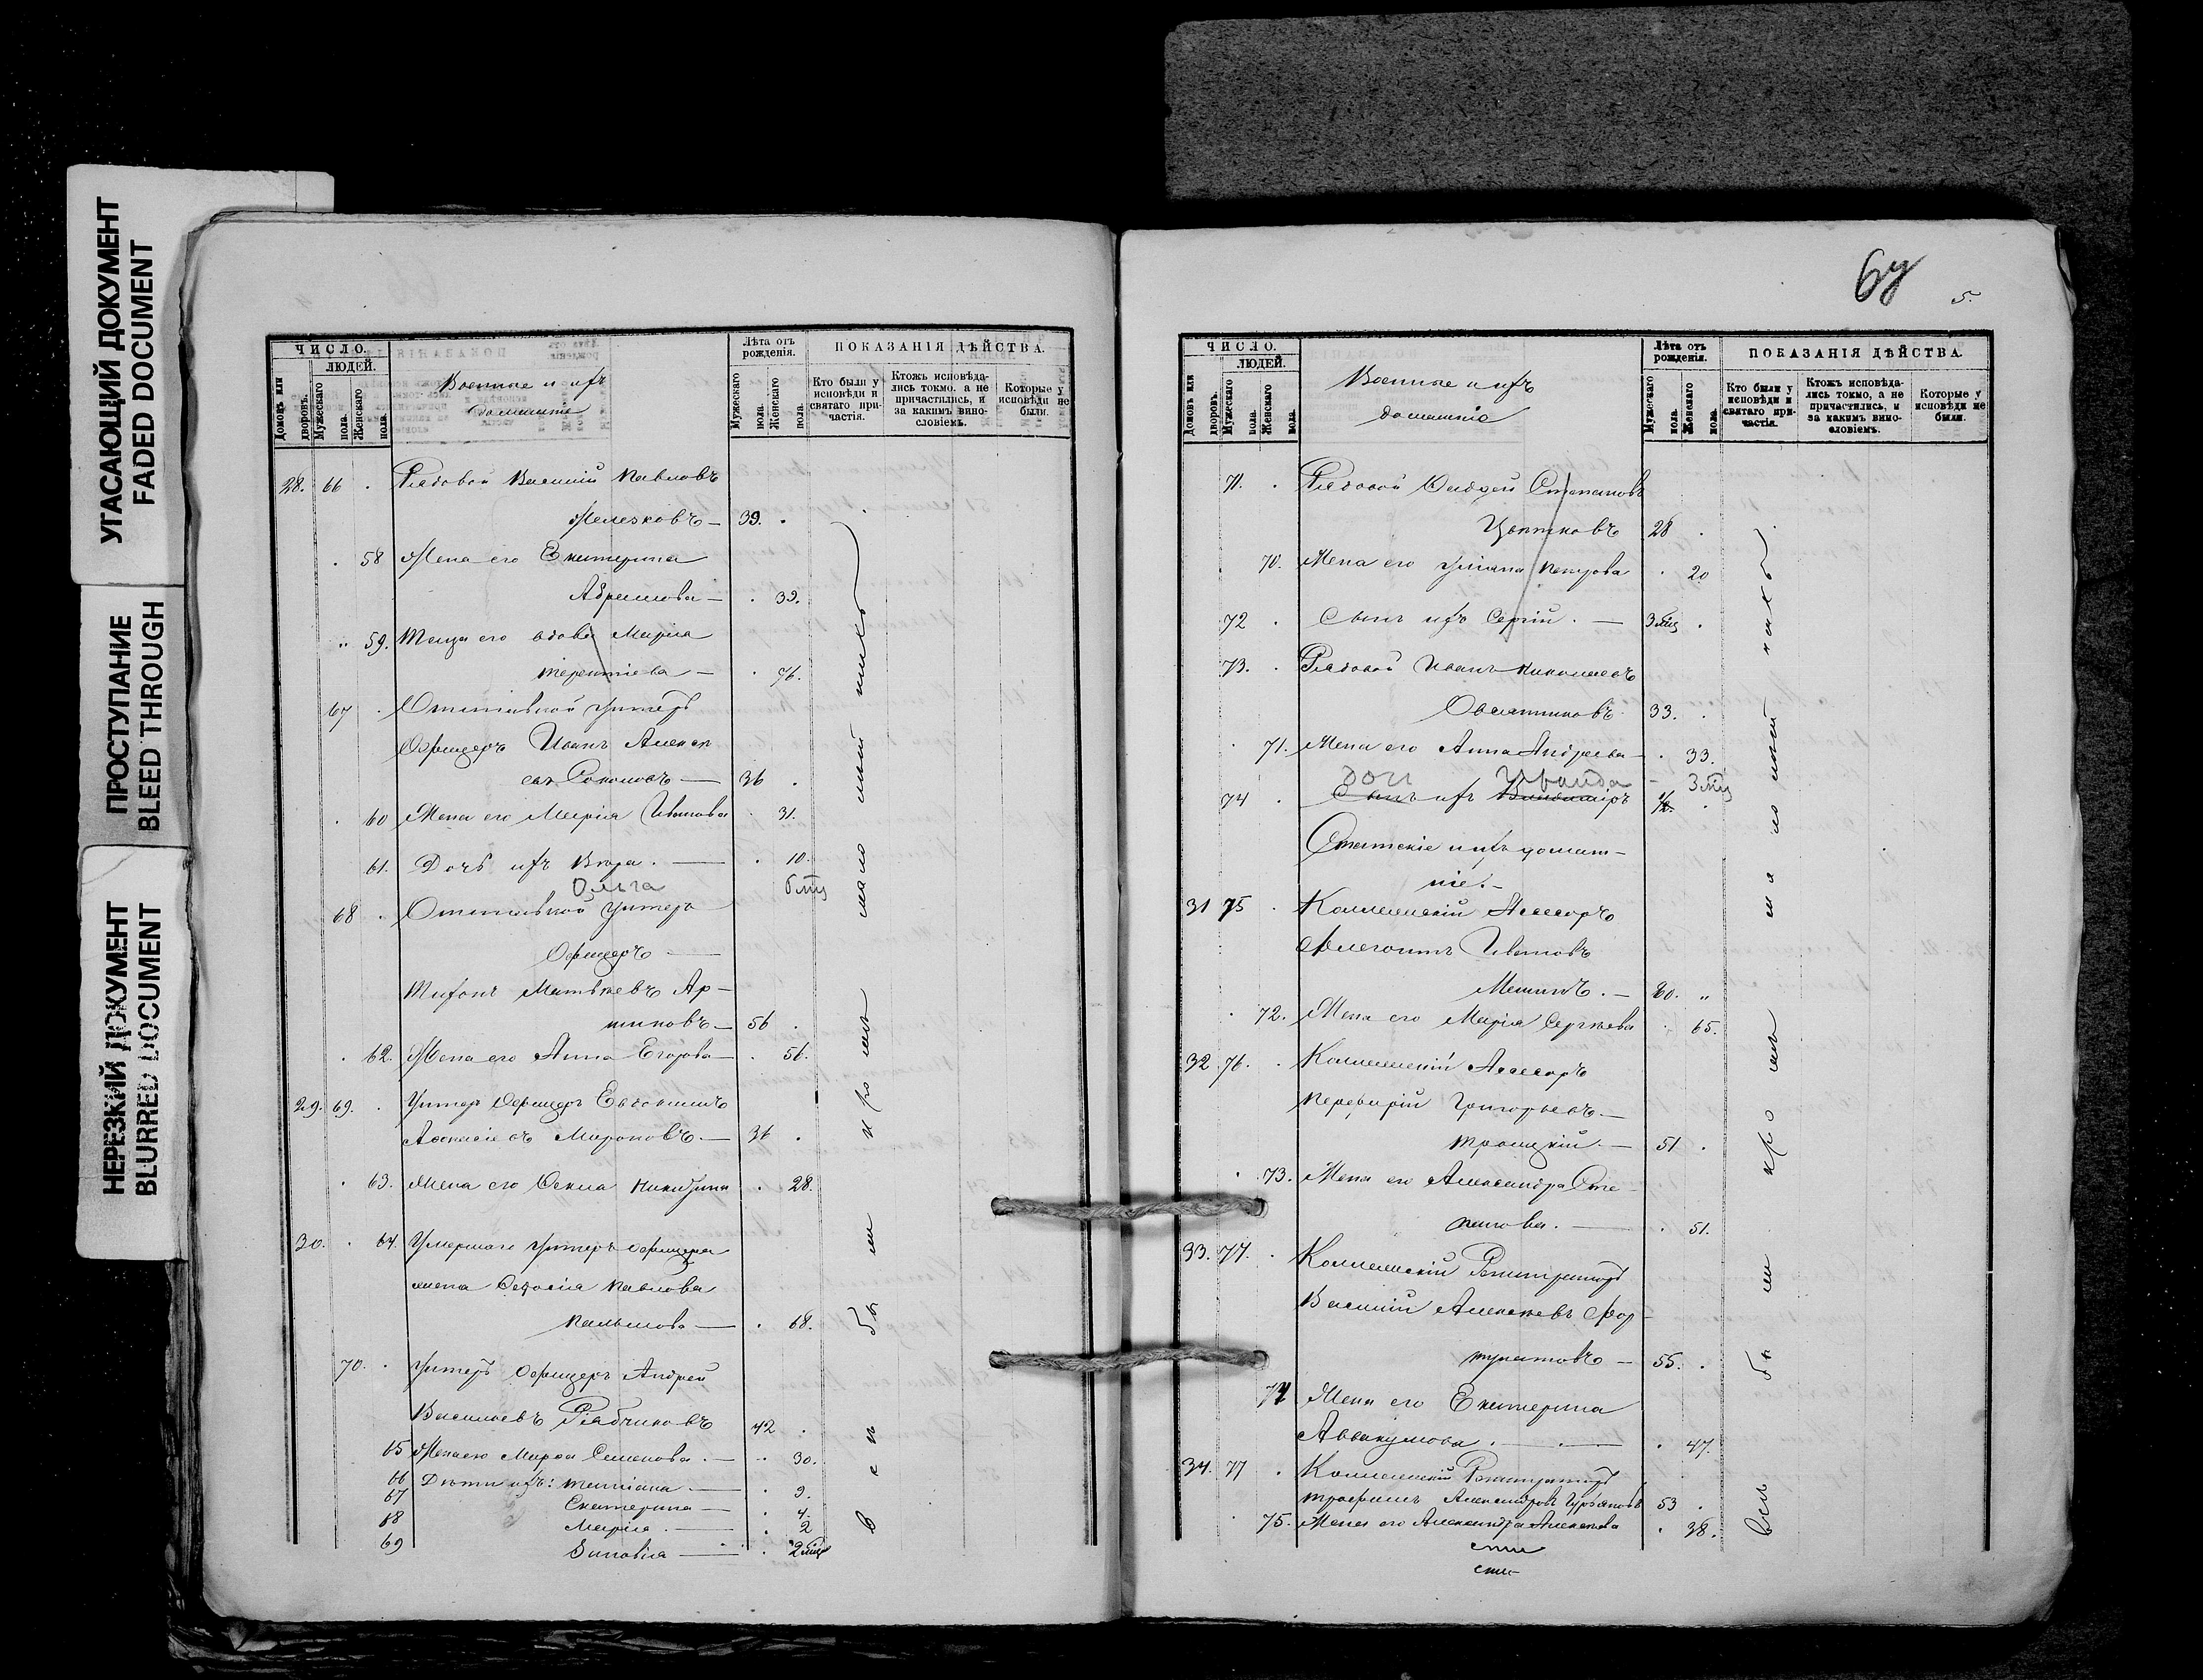 УГАСАЮЩИЙ ДОКУМЕНТ
FADED DOCUMENT
ПРОСТУПАНИЕ
BLEED THROUGH
НЕРЕЗКИЙ ДОКУМЕНТ
BLURRED DOCUMENT
ЧИСЛО.
ЛЮДЕЙ.
Домовъ или дворовъ.
Мужескаго пола.
Женскаго пола.
Военные и ихъ
домашніе
Лѣта отъ рожденія.
Мужескаго пола.
Женскаго пола.
ПОКАЗАНІЯ ДѢЙСТВА.
Кто были у исповѣди и святаго причастія.
Ктожъ исповѣдались токмо, а не причастились, и за какимъ винословіемъ.
Которые у исповѣди не были.
28. 66 Рядовой Василій Павловъ
Железковъ 39.
58 Жена его Екатерина
Абрамова 39.
59. Теща его вдова Марія
Терентіева 76.
67 Унтеръ
Офицеръ Иванъ Алексѣ
евъ Соколовъ 36
60 Жена его Марія Иванова 31.
61. Дочь ихъ Вѣра. 10.
Ольга 6 мц
68 Унтеръ
Офицеръ
Тихонъ Матвѣевъ Ар-
типовъ 56
62. Жена его Анна Егорова 56.
29. 69. Унтеръ Офицеръ Евдокимъ
Аѳанасіевъ Мироновъ. 36
63. Жена его Никитина 28.
30. 64. Умершаго Унтеръ офицера
жена Ѳедосія Павлова
68.
70. Унтеръ Офицеръ Андрей
Васильевъ Рябчиковъ 42
65 Жена его Марѳа Семенова. 30.
66 Дѣти ихъ: Татіана 9.
67 Екатерина 4.
68 Марія. 2
69 Зиновія 2 мѣц
всѣ были кромѣ малолѣтнихъ
67
5.
ЧИСЛО.
ЛЮДЕЙ.
Домовъ или дворовъ.
Мужескаго пола.
Женскаго пола.
Военные и ихъ
домашніе
Лѣта отъ рожденія.
Мужескаго пола.
Женскаго пола.
ПОКАЗАНІЯ ДѢЙСТВА.
Кто были у исповѣди и святаго причастія.
Ктожъ исповѣдались токмо, а не причастились, и за какимъ винословіемъ.
Которые у исповѣди не были.
71. Рядовой Степановъ
28
70. Жена его Петрова 20
72 Сынъ ихъ Сергій. 3 мц
73. Рядовой Иванъ Николаевъ
Овсянниковъ 33.
71. Жена его Анна Андреева 33.
дочь 3 мц
74 Сынъ ихъ Владиміръ 1/2.
Статскіе и ихъ домаш-
ніе.
31 75 Коллежскій Асессоръ
Флегонтъ Ивановъ
80. "
72. Жена его Марія Сергѣева 65.
32 76. Коллежскій Асессоръ
Порфирій Григорьевъ.
Троицкій. 51
73. Жена его Александра Сте-
панова. 51.
33. 77. Коллежскій Регистраторъ
Василій Алексѣевъ Фор-
тунатовъ 55.
74 Жена его Екатерина
Аввакумова. 47.
34. 77 Коллежскій Регистраторъ
Трофимъ Александровъ 53
75. Жена его Александра Алексѣева 38.
всѣ были кромѣ малолѣтнихъ.